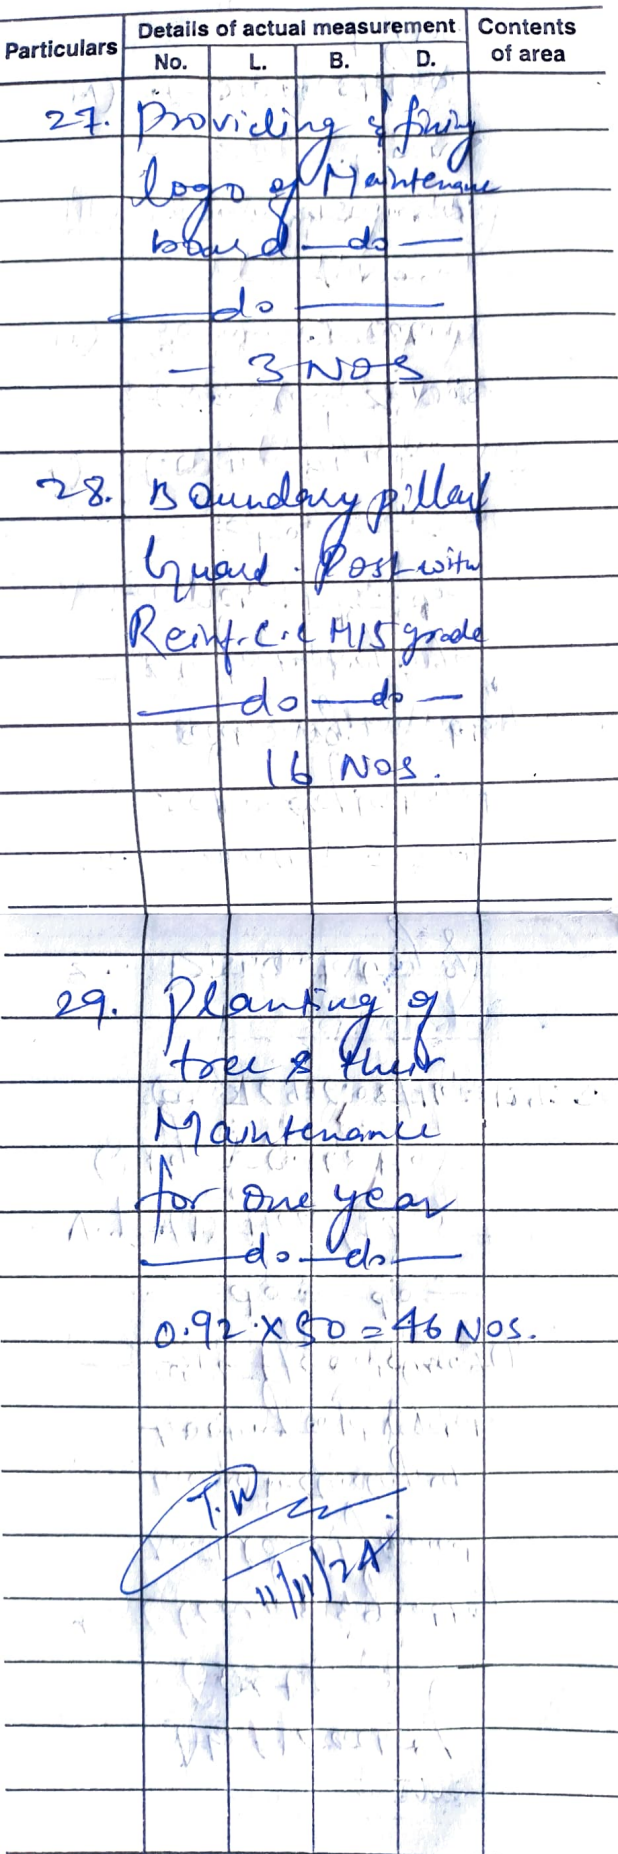 Particulars Details of actual measurement Contents of area
No. L. B. D.
27. Providing & fixing
logo of Maintenance
board —do—
—do—
— 3 NOS
28. Boundary pillar/
Guard. Post with
Reinf. C.C M15 grade
—do—do—
16 NOS.
29. Planting of
tree & their
Maintenance
for one year
—do—do—
0.92 x 50 = 46 NOS.
11/11/24